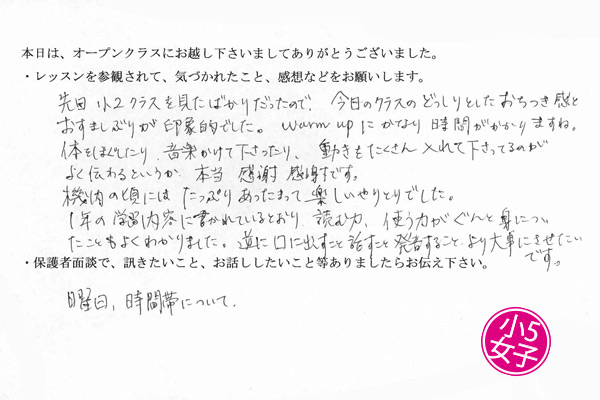 本日は、オープンクラスにお越し下さいましてありがとうございました。
・レッスンを参観されて、気づかれたこと、感想などをお願いします。
先日 小2クラスを見たばかりだったので、今日のクラスの どっしりとした おちつき感と
おすましぶりが 印象的でした。 Warm up に かなり 時間がかかりますね。
体をほぐしたり、音楽かけて下さったり、動きをたくさん 入れて下さってるのが
よく伝わるというか、本当 感謝 感謝です。
機内の頃には たっぷり あったまって 楽しいやりとりでした。
1年の学習内容に書かれているとおり、読む力、使う力がぐんと身につい
たこともよくわかりました。道に口に出すこと 話すこと 発言すること より大事にさせたい
です。
・保護者面談で、訊きたいこと、お話ししたいこと等ありましたらお伝え下さい。
曜日、時間帯について.
小5
女子